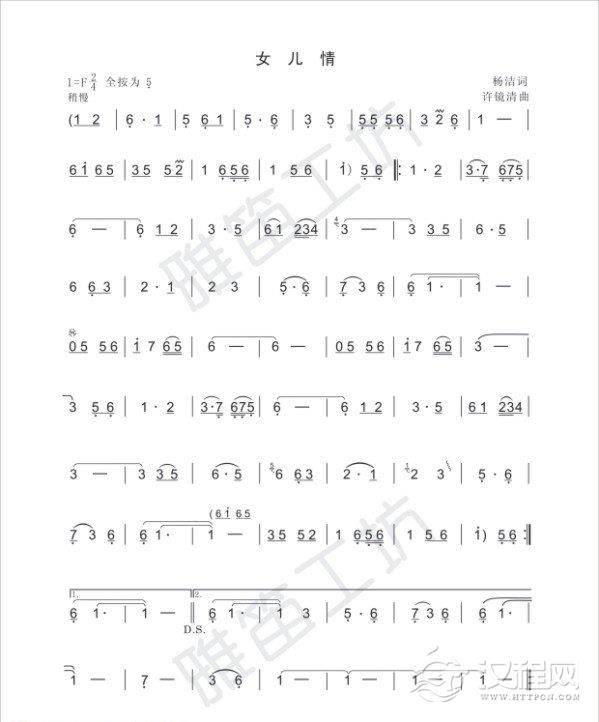 女 儿 情
1=F 2/4 全按为 5
稍慢
杨洁词
许镜清曲
(1 2 | 6 · 1 | 5 61 | 5 · 6 | 3 5 | 55 56 | 3 2 6 | 1 — |
61 65 | 35 52 | 1 656 | 1 56 | 1) 56 |: 1 · 2 | 3·7 675 |
6 — | 6 12 | 3 · 5 | 61 234 | 3 — | 3 35 | 6 · 5 |
6 63 | 2 · 1 | 2 3 | 5 · 6 | 7 3 6 | 6 1· | 1 — |
05 56 | 1 7 65 | 6 — | 6 — | 05 56 | 1 7 65 | 3 — |
3 56 | 1 · 2 | 3·7 675 | 6 — | 6 12 | 3 · 5 | 61 234 |
3 — | 3 35 | 6 · 5 | 6 63 | 2 · 1 | 2 3 | 5 · 6 |
(61 65
7 3 6 | 6 1· | 1 — | 35 52 | 1 656 | 1 56 | 1) 56 :|
1. 2.
6 1· | 1 — | 6 1· | 1 3 | 5 · 6 | 7 3 6 | 6 1· |
D.S.
1 — | 7 — | 6 1 6 | 1 — | 1 — | 1 — | 1 — |
雅笛工坊
雅笛工坊
汉程网
WWW.HTTPCN.COM